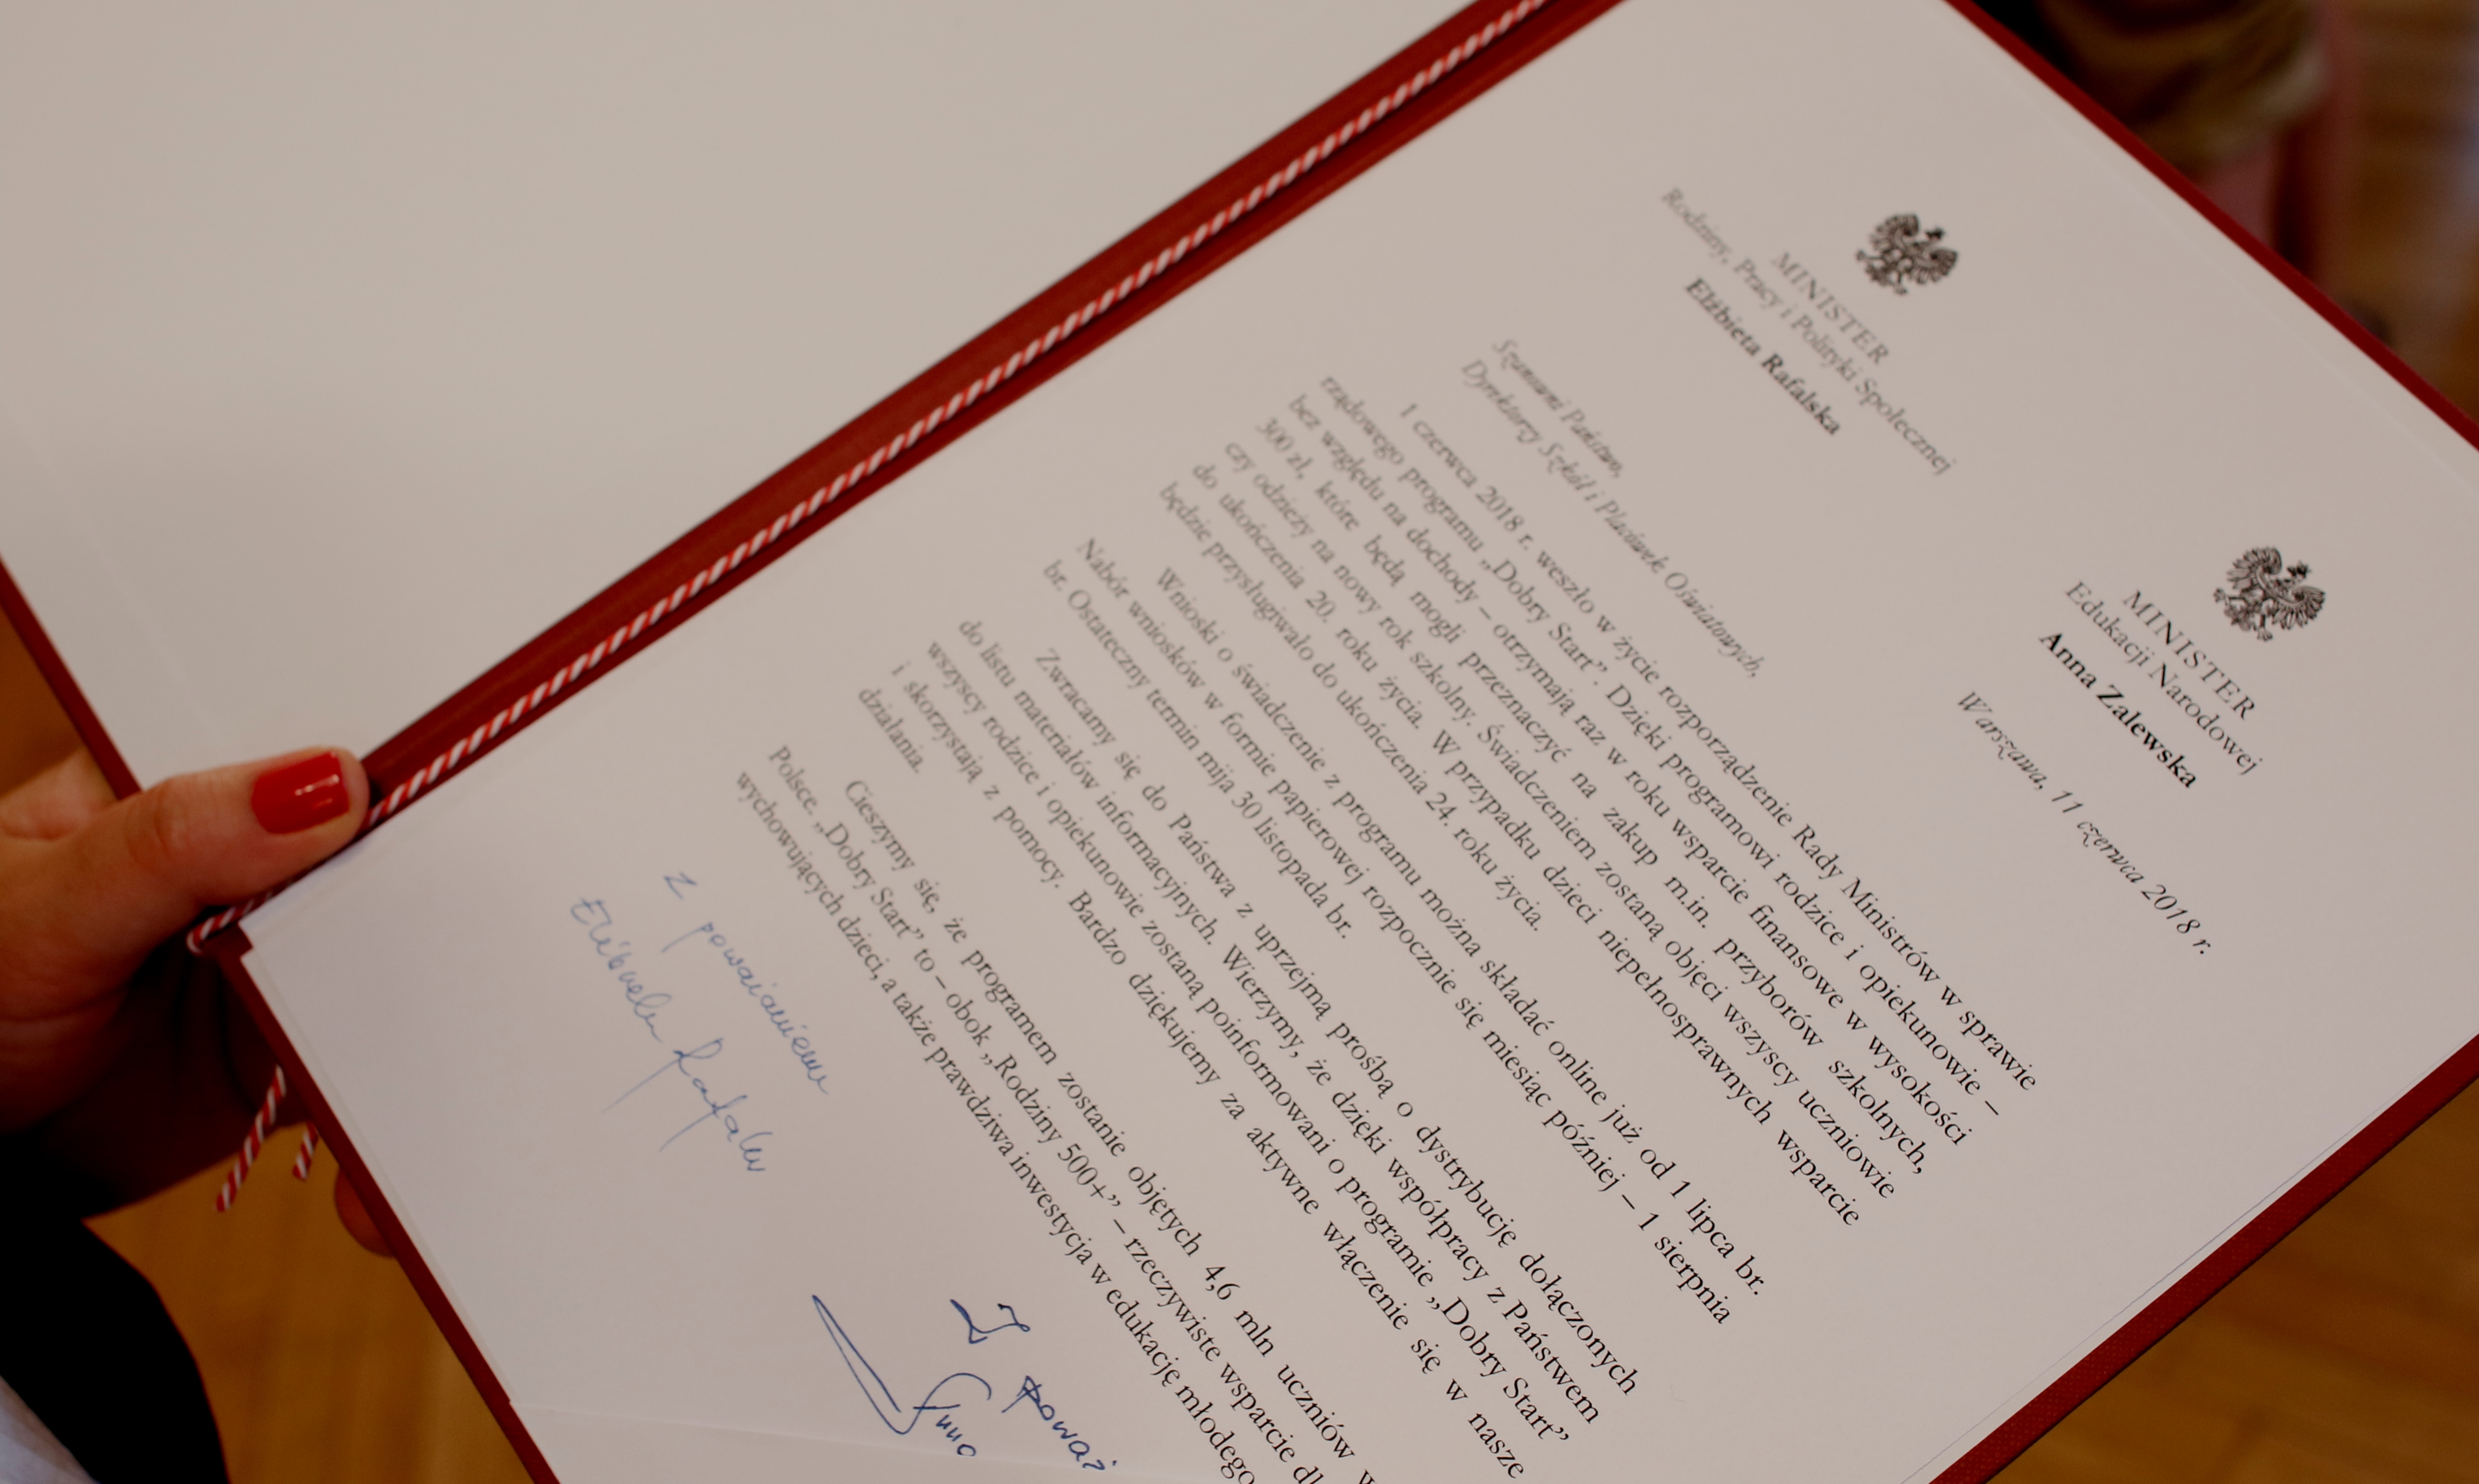 MINISTER
Rodziny, Pracy i Polityki Społecznej
Elżbieta Rafalska
MINISTER
Edukacji Narodowej
Anna Zalewska
Warszawa, 11 czerwca 2018 r.
Szanowni Państwo,
Dyrektorzy Szkół i Placówek Oświatowych,
1 czerwca 2018 r. weszło w życie rozporządzenie Rady Ministrów w sprawie
rządowego programu „Dobry Start”. Dzięki programowi rodzice i opiekunowie –
bez względu na dochody – otrzymają raz w roku wsparcie finansowe w wysokości
300 zł, które będą mogli przeznaczyć na zakup m.in. przyborów szkolnych,
czy odzieży na nowy rok szkolny. Świadczeniem zostaną objęci wszyscy uczniowie
do ukończenia 20. roku życia. W przypadku dzieci niepełnosprawnych wsparcie
będzie przysługiwało do ukończenia 24. roku życia.
Wnioski o świadczenie z programu można składać online już od 1 lipca br.
Nabór wniosków w formie papierowej rozpocznie się miesiąc później – 1 sierpnia
br. Ostateczny termin mija 30 listopada br.
Zwracamy się do Państwa z uprzejmą prośbą o dystrybucję dołączonych
do listu materiałów informacyjnych. Wierzymy, że dzięki współpracy z Państwem
wszyscy rodzice i opiekunowie zostaną poinformowani o programie „Dobry Start”
i skorzystają z pomocy. Bardzo dziękujemy za aktywne włączenie się w nasze
działania.
Cieszymy się, że programem zostanie objętych 4,6 mln uczniów w
Polsce. „Dobry Start” to – obok „Rodziny 500+” – rzeczywiste wsparcie dl
wychowujących dzieci, a także prawdziwa inwestycja w edukację młodego
Z poważaniem
Elżbieta Rafalska
Z poważ